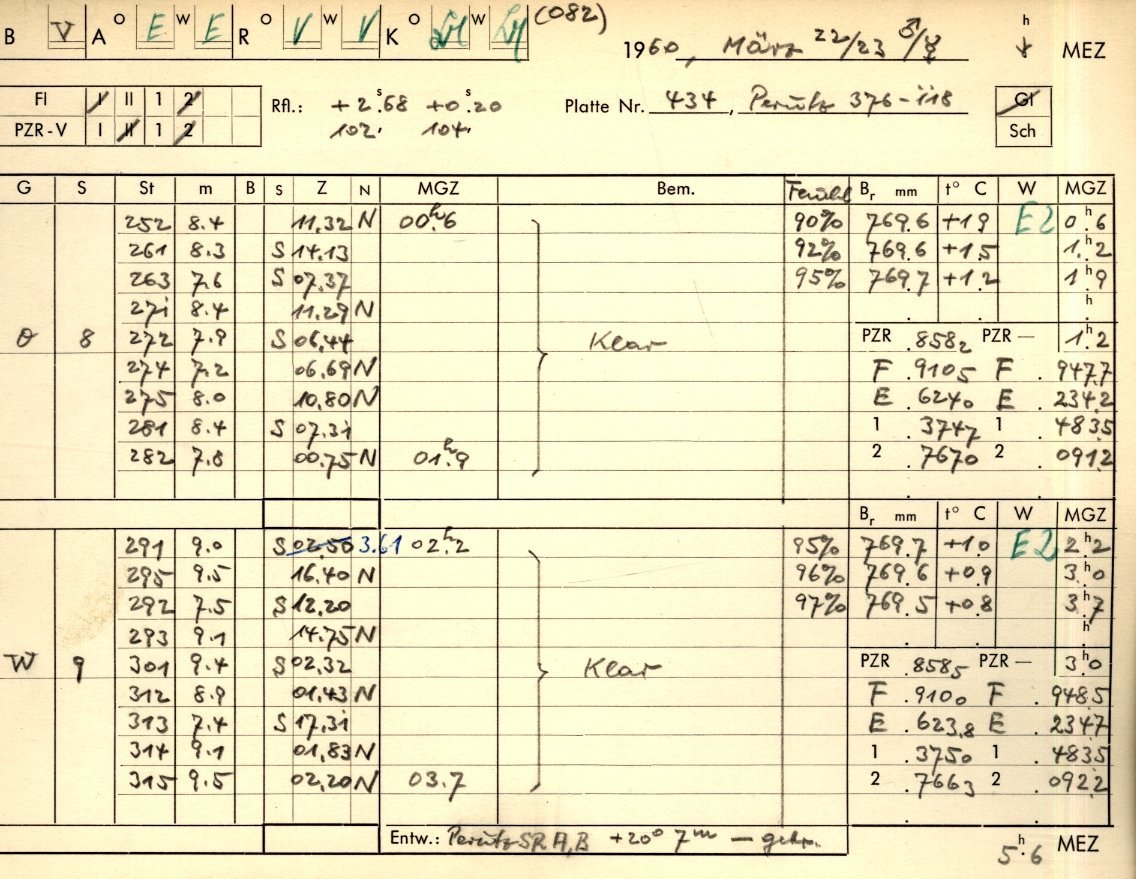 B V A O E W E R O V W V K O W (082)
1960, März 22/23 ♂/☿ h MEZ
FI I II 1 2 Rfl.: +2.ˢ68 +0.ˢ20 Platte Nr. 434, Perutz 376-118 Gl
PZR-V I II 1 2 102. 104. Sch
G S St m B S Z N MGZ Bem. Feucht Br mm t° C W MGZ
252 8.4 11.32 N 00.ʰ6 90% 769.6 +1.9 E2 0.ʰ6
261 8.3 S 14.13 92% 769.6 +1.5 1.ʰ2
263 7.6 S 07.37 95% 769.7 +1.2 1.ʰ9
271 8.4 11.29 N h
O 8 272 7.9 S 06.44 Klar PZR .8582 PZR — 1.ʰ2
274 7.2 06.69 N F .9105 F .9477
275 8.0 10.80 N E .6240 E .2342
281 8.4 S 07.31 1 .3747 1 .4835
282 7.8 00.75 N 01.ʰ9 2 .7670 2 .0912
Br mm t° C W MGZ
291 9.0 S 02.50 3.61 02.ʰ2 95% 769.7 +1.0 E2 2.ʰ2
295 9.5 16.40 N 96% 769.6 +0.9 3.ʰ0
292 7.5 S 12.20 97% 769.5 +0.8 3.ʰ7
293 9.1 14.75 N h
W 9 301 9.4 S 02.32 Klar PZR .8585 PZR — 3.ʰ0
312 8.9 01.43 N F .9100 F .9485
313 7.4 S 17.31 E .6238 E .2347
314 9.1 01.83 N 1 .3750 1 .4835
315 9.5 02.20 N 03.7 2 .7663 2 .0922
Entw.: Perutz SR A,B +20° 7ᵐ — gebr. 5.ʰ6 MEZ